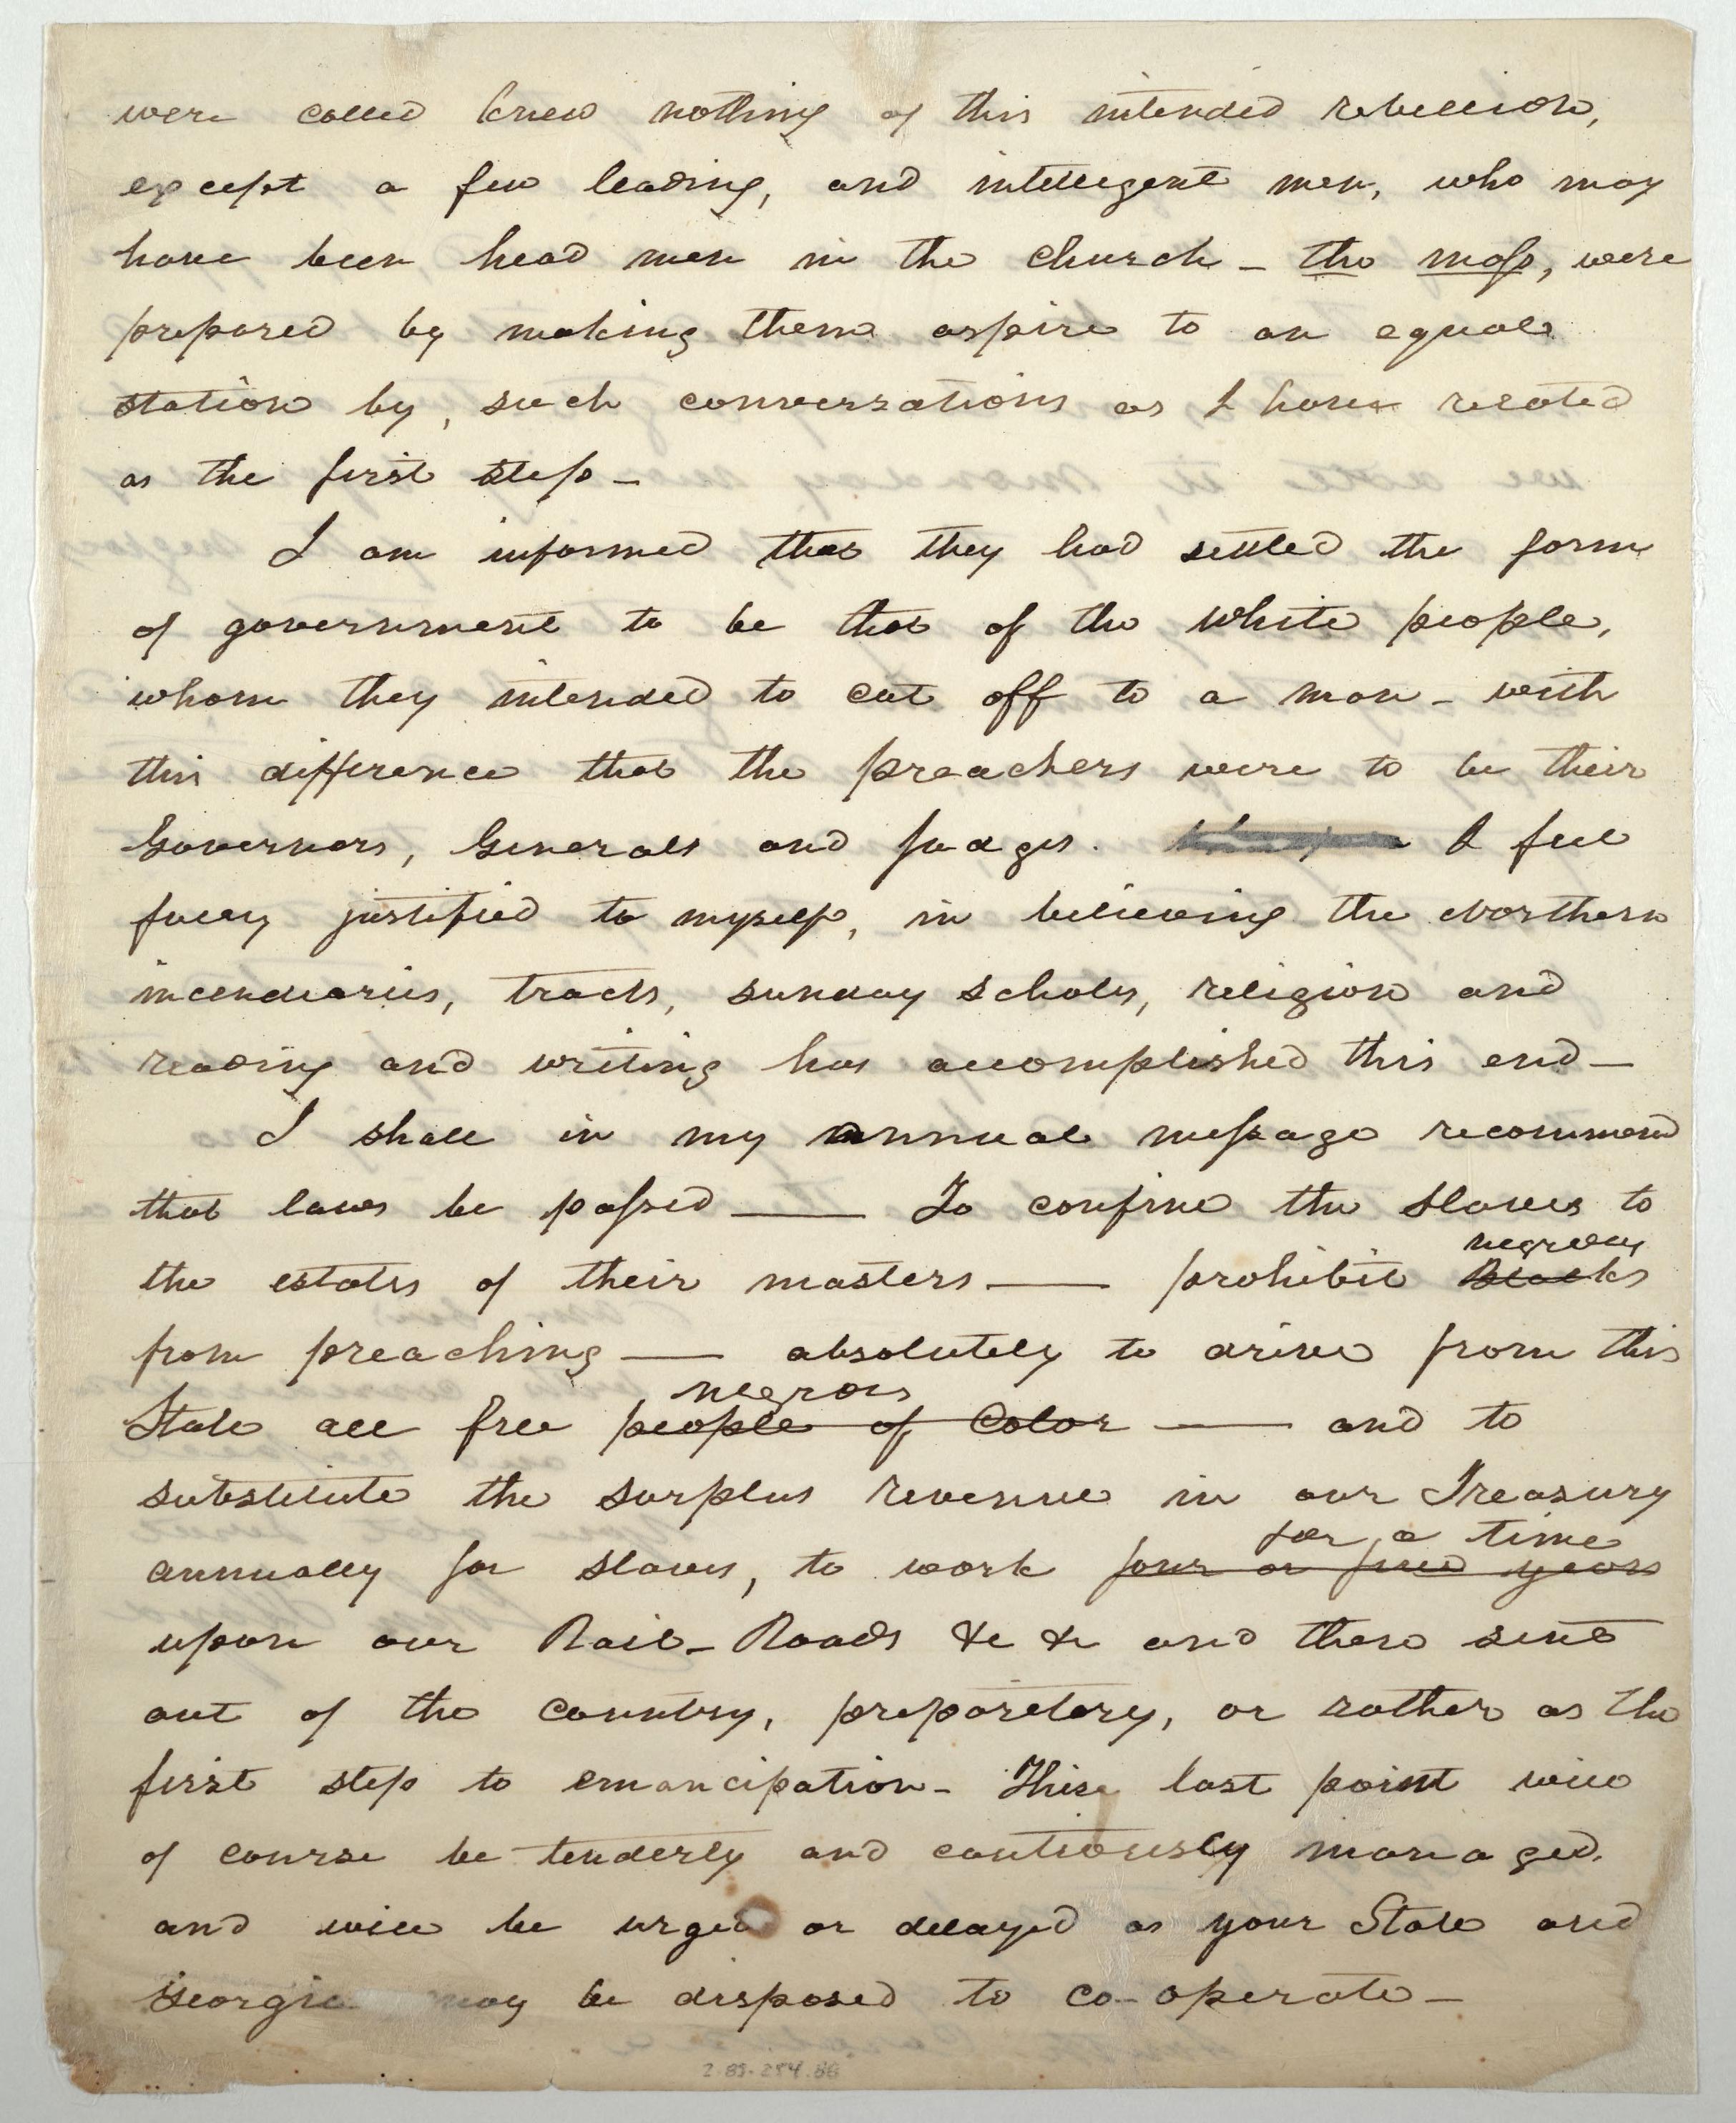 were called knew nothing of this intended rebellion,
except a few leading, and intelligent men, who may
have been head men in the church - the mass, were
prepared by making them aspire to an equal
station by, such conversations as I have related
as the first step -
I am informed that they had settled the form
of government to be that of the white people,
whom they intended to cut off to a man - with
this difference that the preachers were to be their
Governors, Generals and Judges. I feel
fully justified to myself, in believing the Northern
incendiaries, tracts, sunday schols, religion and
reading and writing has accomplished this end -
I shall in my annual message recommend
that laws be passed — To confine the Slaves to
negroes
the estates of their masters — prohibit Blacks
from preaching — absolutely to drive from this
negroes
State all free people of Color — and to
substitute the surplus revenue in our Treasury
for a time
annually for slaves, to work four or five years
upon our Rail-Roads &c &c and then sent
out of the country, preparetory, or rather as the
first step to emancipation - This last point will
of course be tenderly and cautiously managed.
and will be urged or delayed as your State and
Georgia may be disposed to co-operate -
2-85-284.86